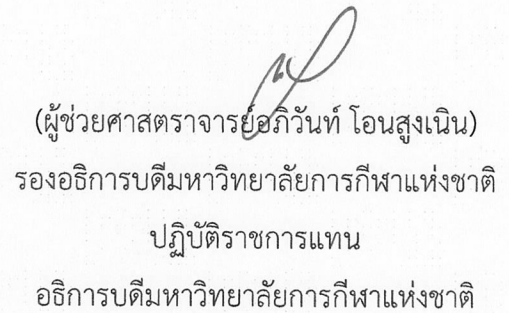 (ผู้ช่วยศาสตราจารย์อภิวันท์ โอนสูงเนิน)
รองอธิการบดีมหาวิทยาลัยการกีฬาแห่งชาติ
ปฏิบัติราชการแทน
อธิการบดีมหาวิทยาลัยการกีฬาแห่งชาติ